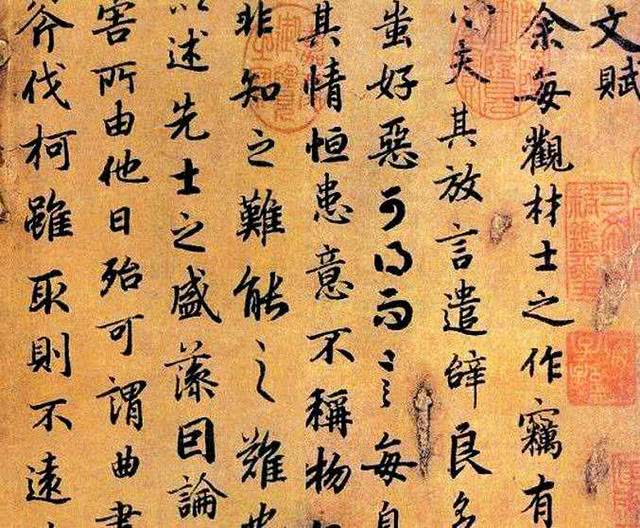 文賦
余每觀材士之作竊有
心夫其放言遣辭良多
蚩好惡可得而言每自
其情恒患意不稱物
非知之難能之難也
以述先士之盛藻因論
害所由他日殆可謂曲盡
斧伐柯雖取則不遠